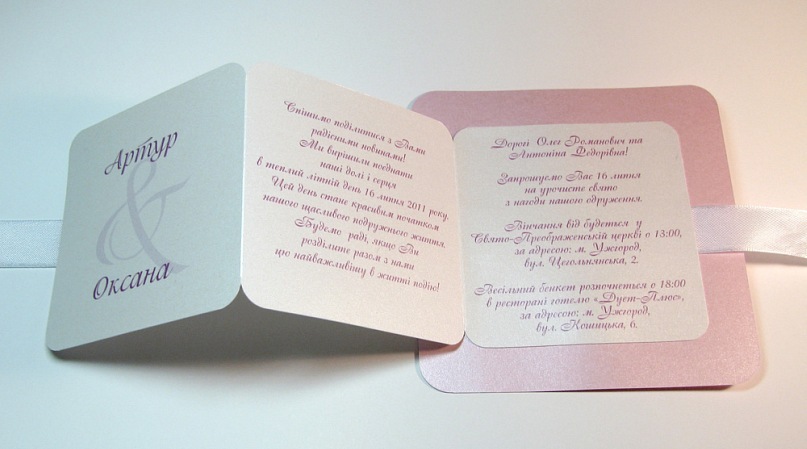 Артур
&
Оксана
Спішимо поділитися з Вами
радісними новинами!
Ми вирішили поєднати
наші долі і серця
в теплий літній день 16 липня 2011 року.
Цей день стане красивим початком
нашого щасливого подружнього життя.
Будемо раді, якщо Ви
розділите разом з нами
цю найважливішу в житті подію!
Дорогі Олег Романович та
Антоніна Федорівна!
Запрошуємо Вас 16 липня
на урочисте свято
з нагоди нашого одруження.
Вінчання від будеться у
Свято-Преображенській церкві о 13:00,
за адресою: м. Ужгород,
вул. Цегольнянська, 2.
Весільний бенкет розпочнеться о 18:00
в ресторані готелю «Дует-Плюс»,
за адресою: м. Ужгород,
вул. Кошицька, 6.